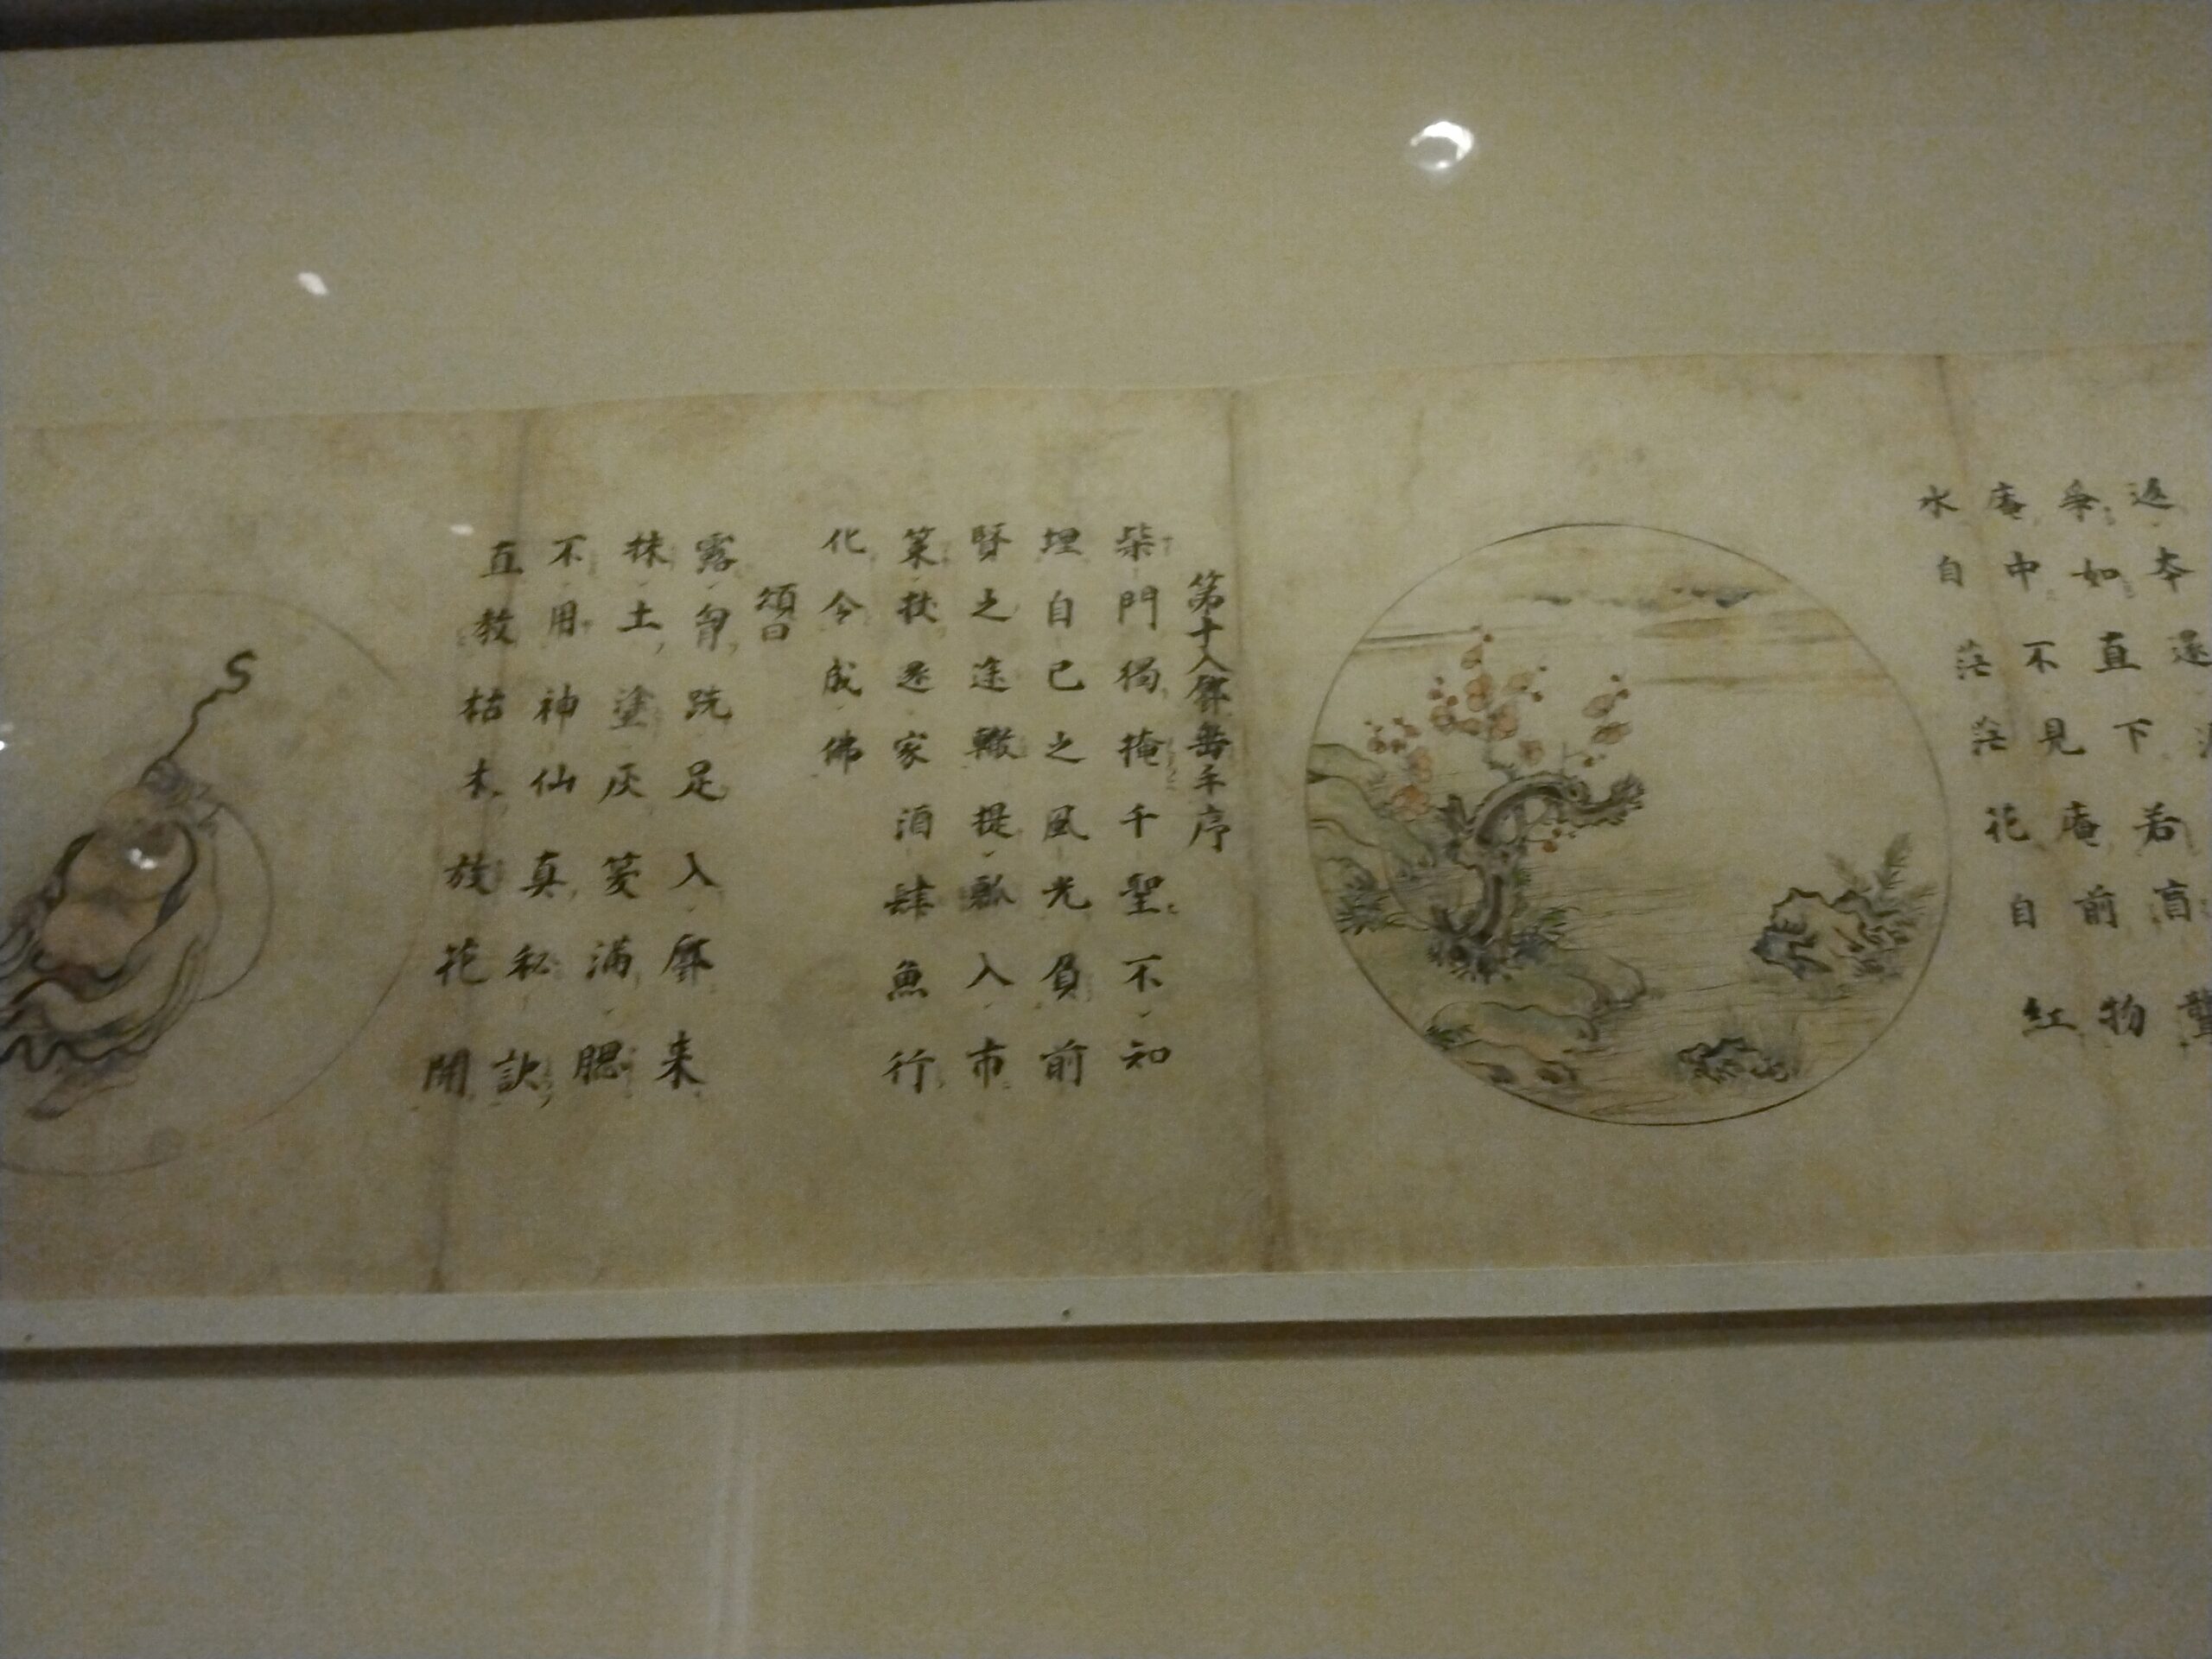 返本還
爭如直下若盲聾
庵中不見庵前物
水自茫茫花自紅
第十入鄽垂手序
柴門獨掩千聖不知
埋自己之風光負前
賢之途轍提瓢入市
策杖還家酒肆魚行
化令成佛
頌曰
露胷跣足入廛来
抹土塗灰笑滿腮
不用神仙真秘訣
直教枯木放花開